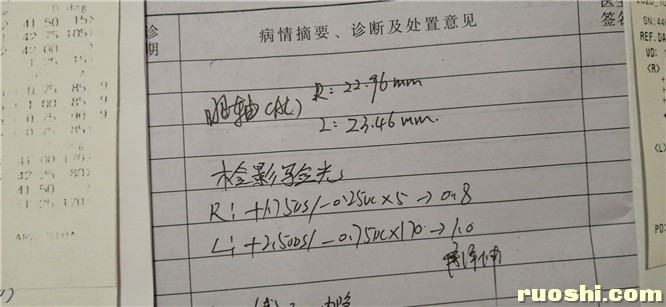 41 50 15>
42 25 105>
42 00
1 25 15>
0 75 85 9
1 00 85 9
0 75 90 9
0 75 85
41 00 170>
42 25 80>
41 50
1 25 170
诊期
病情摘要、诊断及处置意见
医生
签名
眼轴(AL) R: 22.96mm
L: 23.46mm.
检影验光:
R: +1.75DS/-0.25DC×5→0.8
L: +2.50DS/-0.75DC×170→1.0
2020_10
SN:44
REF.DA
VD:
<R>
<L>
PD:
ruoshi.com